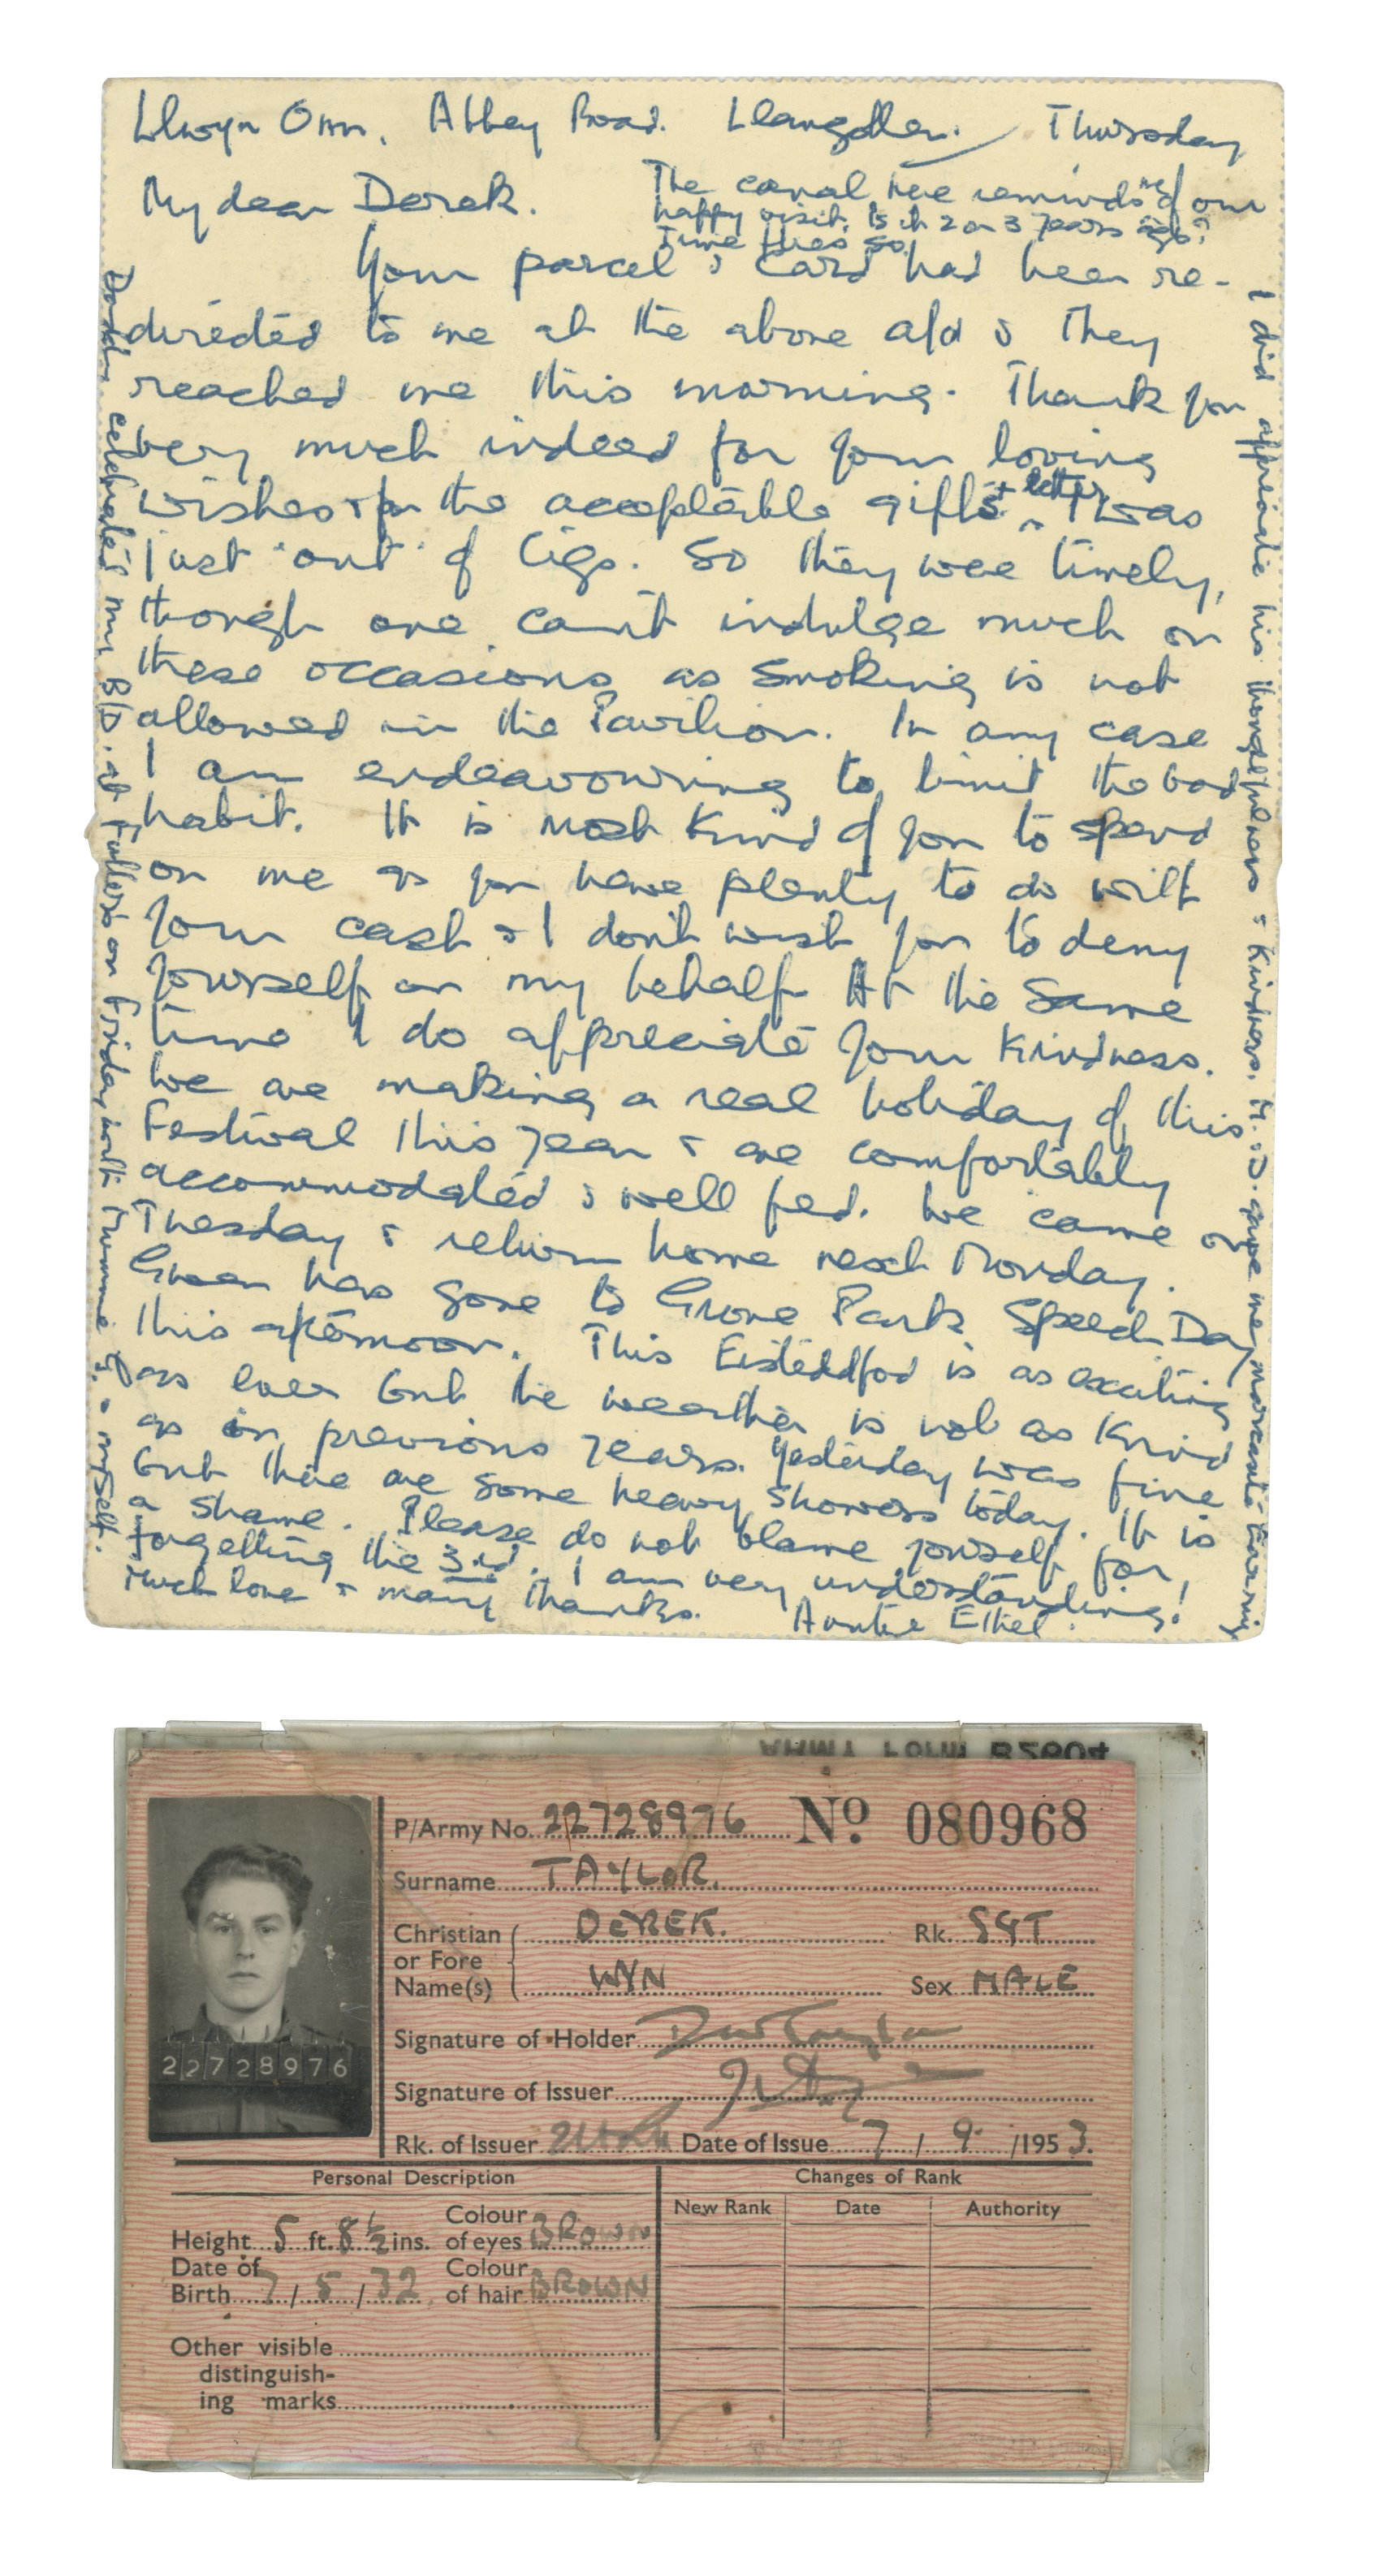 Llwyn Onn. Abbey Road. Llangollen. Thursday
My dear Derek.
The canal here reminds me of our
happy visit. Is it 2 or 3 years ago?
Time flies so.
Your parcel & card had been re-
directed to me at the above a/d & they
reached me this morning. Thank you
very much indeed for your loving
wishes & for the acceptable gifts + letter. I was
just 'out' of Cigs. So they were timely,
though one can't indulge much on
these occasions as smoking is not
allowed in the Pavilion. In any case
I am endeavouring to limit the bad
habit. It is most kind of you to spend
on me as you have plenty to do with
your cash & I don't wish you to deny
yourself on my behalf. At the same
time I do appreciate your kindness.
We are making a real holiday of this
Festival this year & are comfortably
accommodated & well fed. We came on
Tuesday & return home next Monday.
Gwen has gone to Grove Park Speech Day
this afternoon. This Eisteddfod is as exciting
as ever but the weather is not as kind
as in previous years. Yesterday was fine
but there are some heavy showers today. It is
a shame. Please do not blame yourself for
forgetting the 3rd. I am very understanding!
Much love & many thanks. Auntie Ethel.
Daddy celebrated my B/D. at Fullers on Friday with Mummie G. & myself.
I did appreciate his thoughtfulness & kindness. M. & D. gave me marcasite Earrings
ARMY FORM B2604
P/Army No. 22728976 No. 080968
Surname TAYLOR.
Christian or Fore Name(s) DEREK. Rk. SGT
WYN Sex MALE
Signature of Holder DW Taylor
Signature of Issuer
Rk. of Issuer Date of Issue 7 / 9 /1953.
22728976
Personal Description Changes of Rank
New Rank Date Authority
Height 5 ft. 8½ ins. Colour of eyes BROWN
Date of Birth 7 / 5 / 32 Colour of hair BROWN
Other visible
distinguish-
ing marks